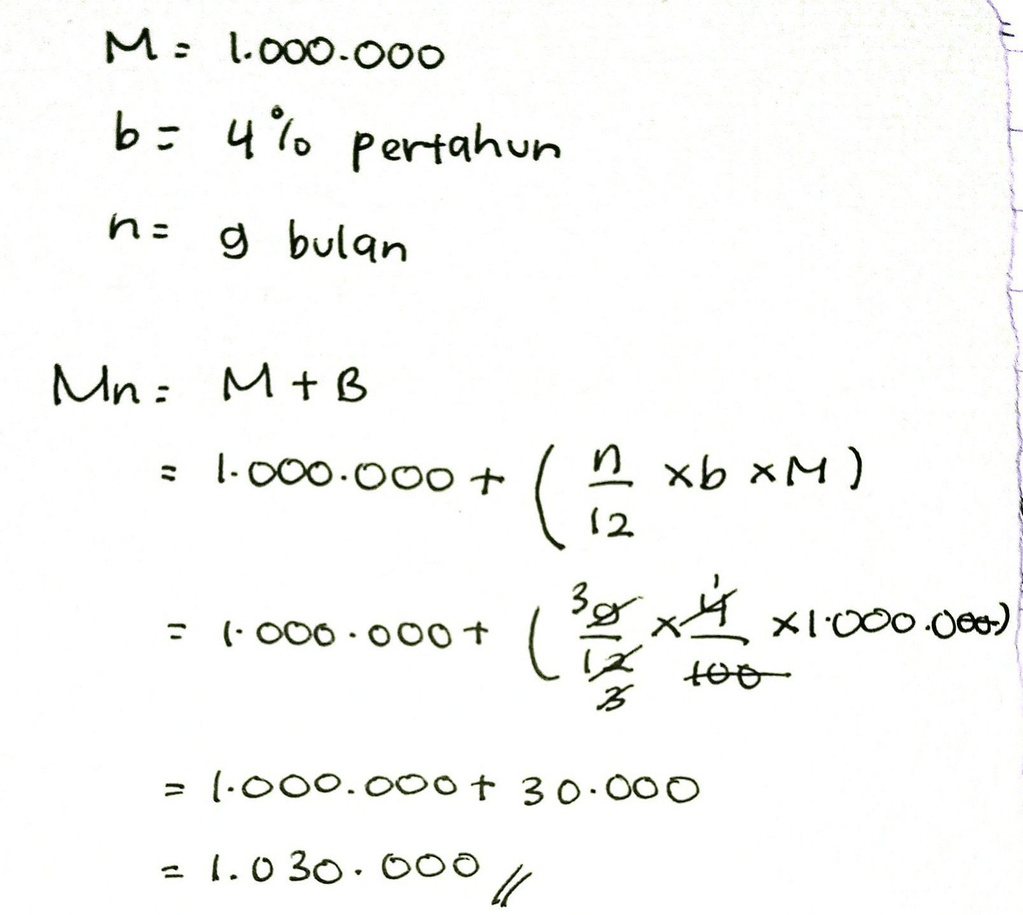 M = 1.000.000
b = 4% pertahun
n = 9 bulan
Mn = M + B
= 1.000.000 + ( n/12 x b x M )
= 1.000.000 + ( 3 9/12 3 x 1 4/100 x 1.000.000 )
= 1.000.000 + 30.000
= 1.030.000 //